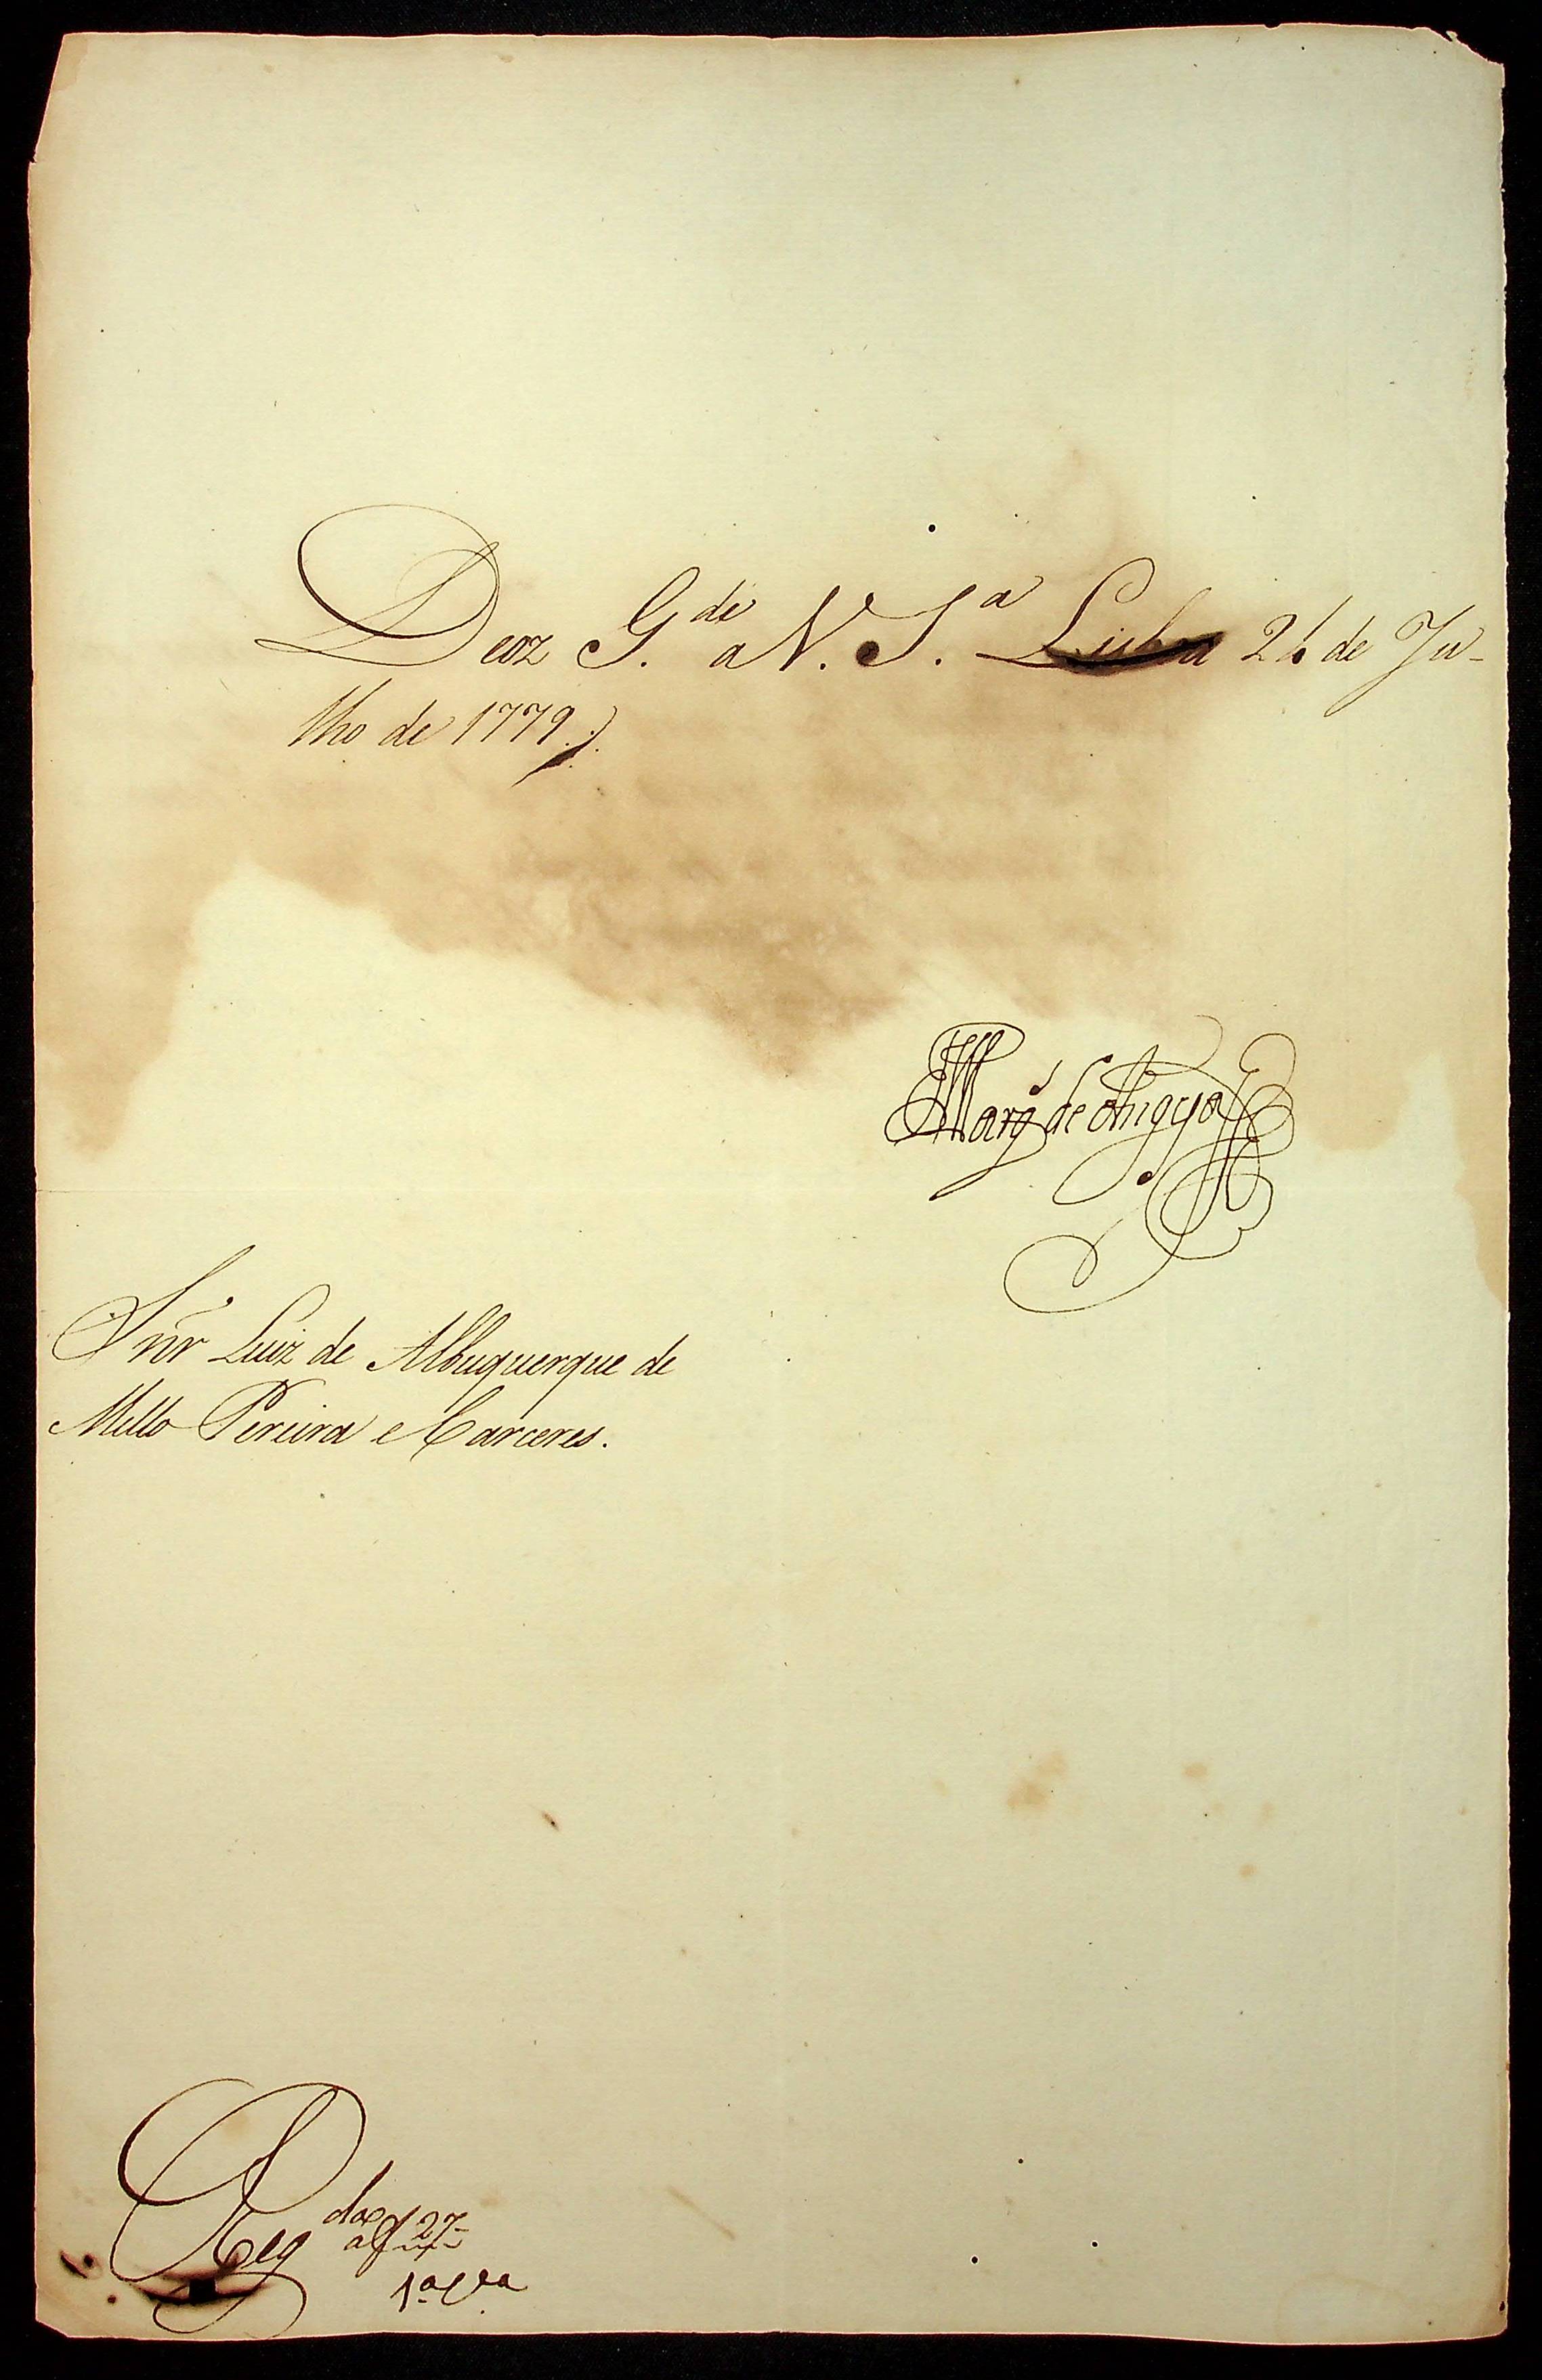 Deoz G.de a V. S.a Lisba 21 de Ju-
lho de 1779.
Marq de Angeja
Snr Luiz de Albuquerque de
Mello Pereira e Carceres.
Reg do a f 27
1a via